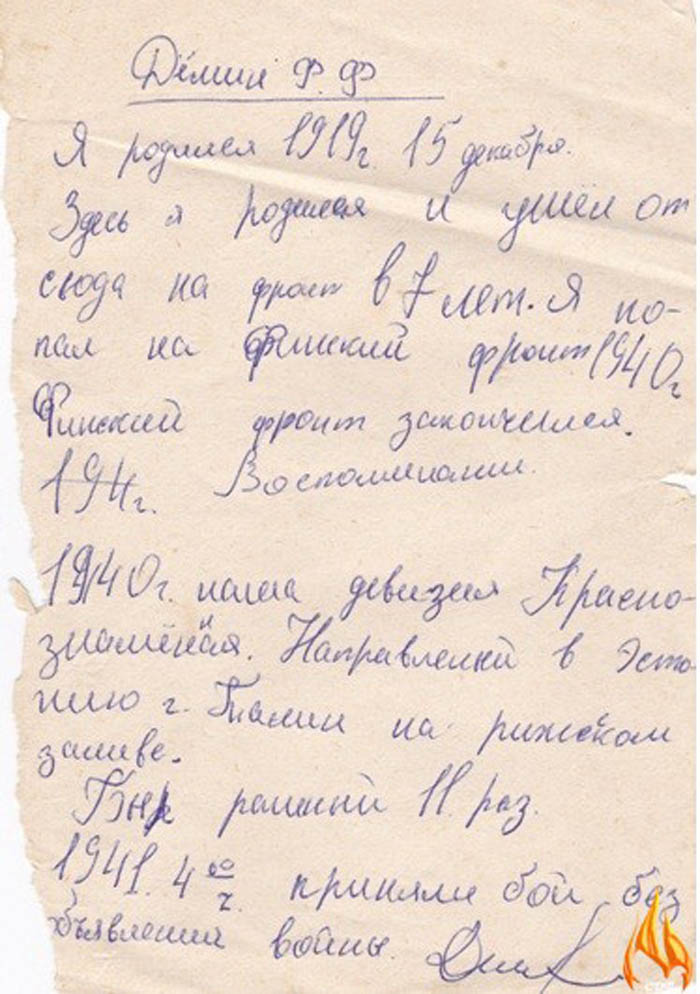 Дёмин Ф. Ф
Я родился 1919г. 15 декабря.
Здесь я родился и ушёл от
сюда на фронт в 7 лет. Я по-
пал на Финский фронт 1940г
Финский фронт закончился.
194г. Воспоминании.
1940г. наша девизия Красно-
знамёная. Направлений в Эсто
нию г. Талин на рижском
заливе.
раненый 11. раз.
1941. 4 00 ч. приняли бой без
объявлении войны.